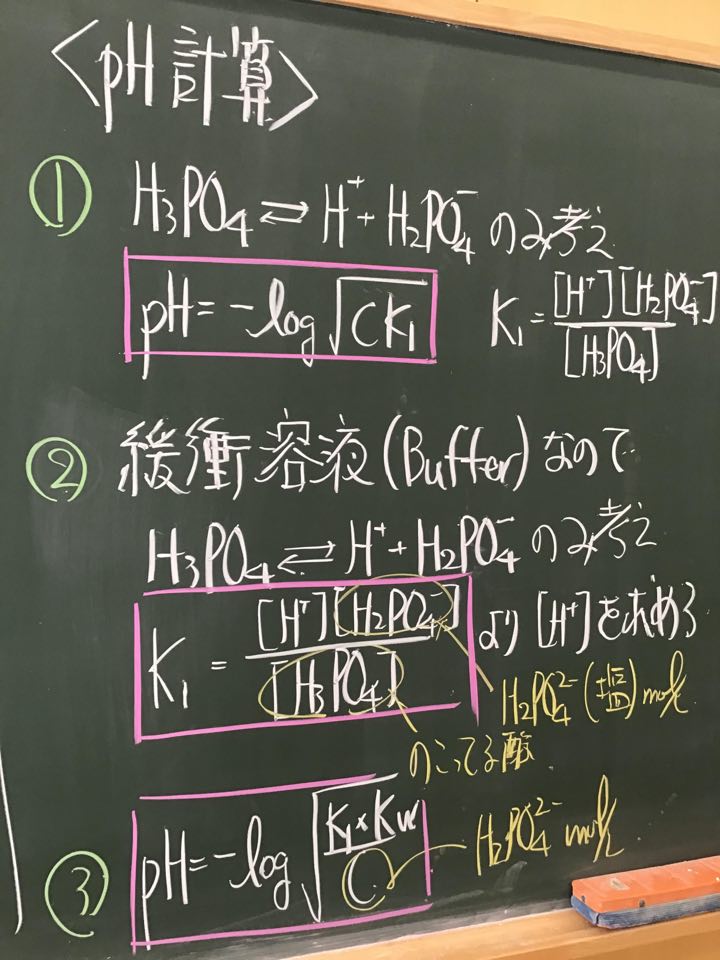 <pH 計算>
① H₃PO₄ ⇄ H⁺ + H₂PO₄⁻ のみ考え
pH = -log√(CK₁) K₁ = [H⁺][H₂PO₄⁻] / [H₃PO₄]
② 緩衝溶液(Buffer)なので
H₃PO₄ ⇄ H⁺ + H₂PO₄⁻ のみ考え
K₁ = [H⁺][H₂PO₄⁻] / [H₃PO₄] より [H⁺]を求める
H₂PO₄²⁻(塩)mol
のこってる酸
③ pH = -log√(K₁×Kw / C) H₂PO₄²⁻ mol